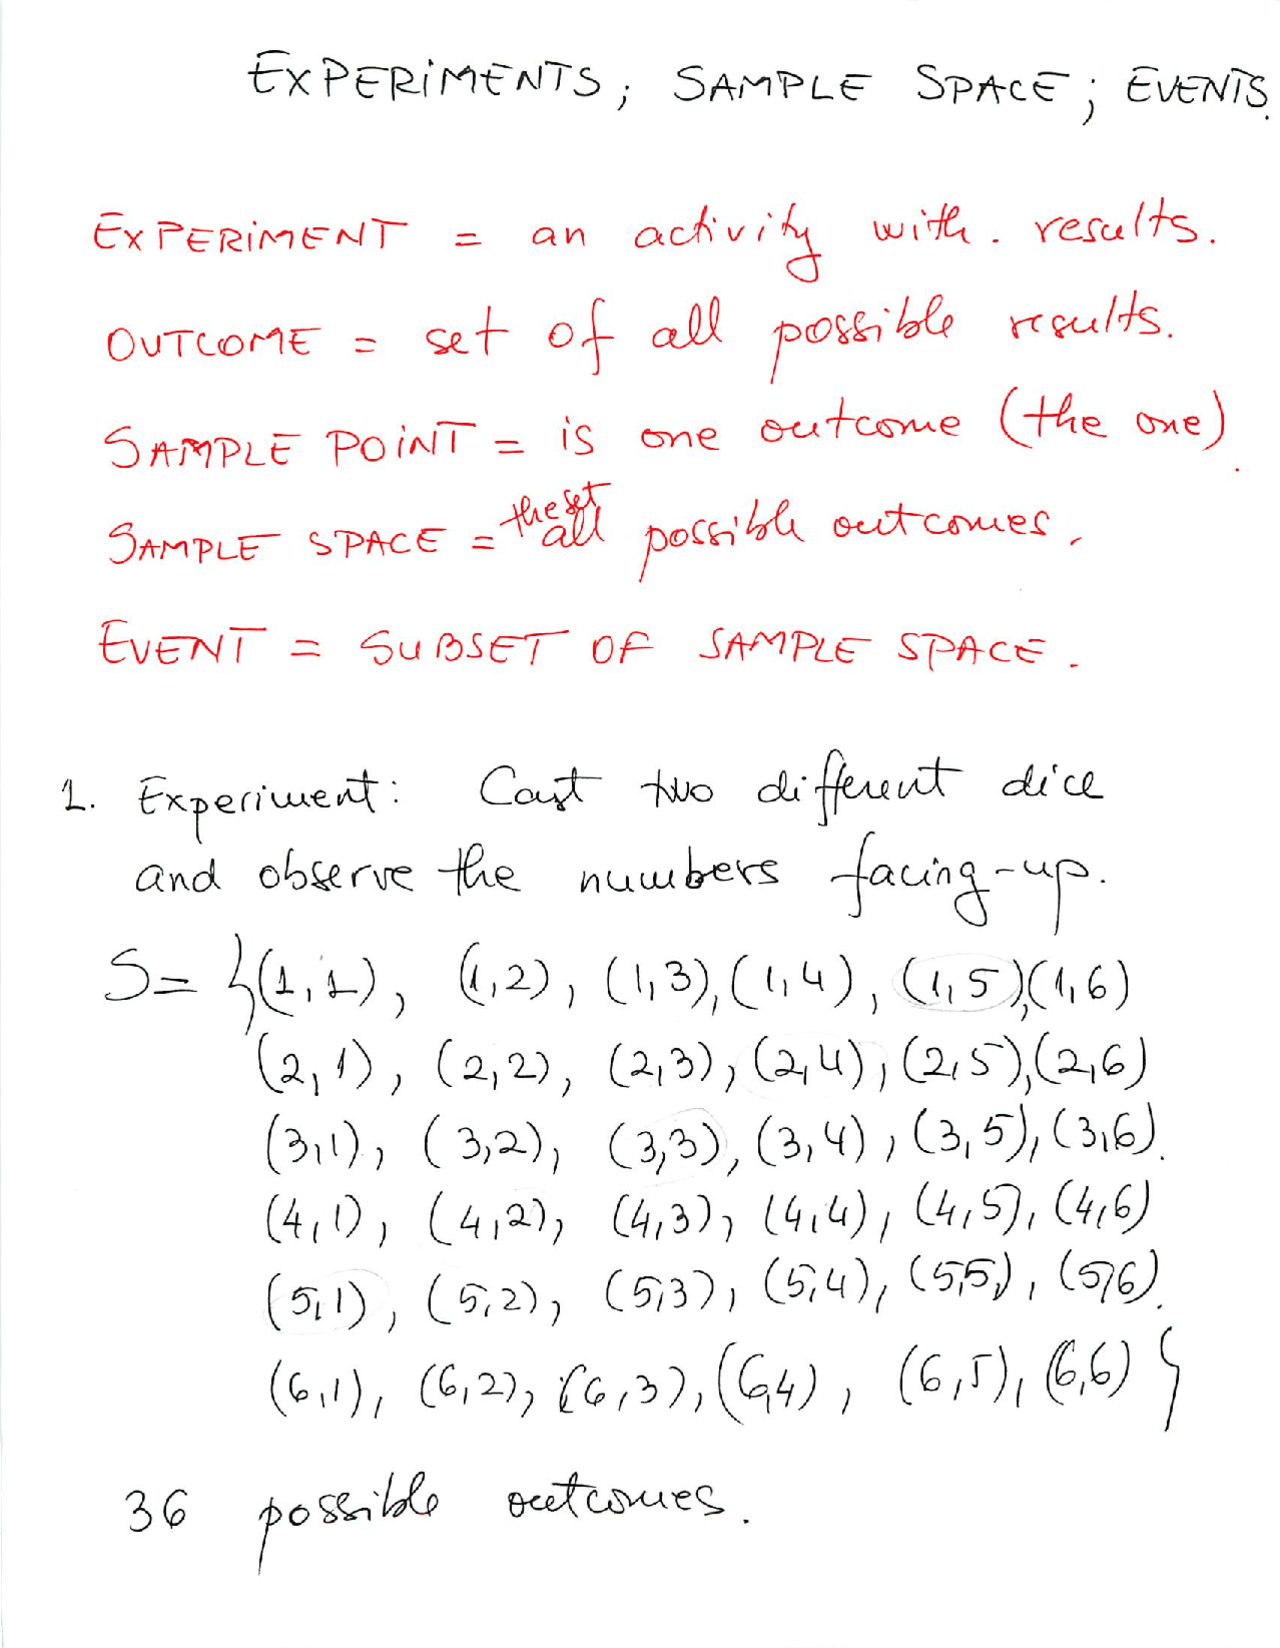 EXPERIMENTS; SAMPLE SPACE; EVENTS.
EXPERIMENT = an activity with. results.
OUTCOME = set of all possible results.
SAMPLE POINT = is one outcome (the one).
SAMPLE SPACE = the set all possible outcomes.
EVENT = SUBSET OF SAMPLE SPACE.
1. Experiment: Cast two different dice
and observe the numbers facing-up.
S= {(1,1), (1,2), (1,3), (1,4), (1,5), (1,6)
(2,1), (2,2), (2,3), (2,4), (2,5), (2,6)
(3,1), (3,2), (3,3), (3,4), (3,5), (3,6).
(4,1), (4,2), (4,3), (4,4), (4,5), (4,6)
(5,1), (5,2), (5,3), (5,4), (5,5), (5,6).
(6,1), (6,2), (6,3), (6,4), (6,5), (6,6) }
36 possible outcomes.